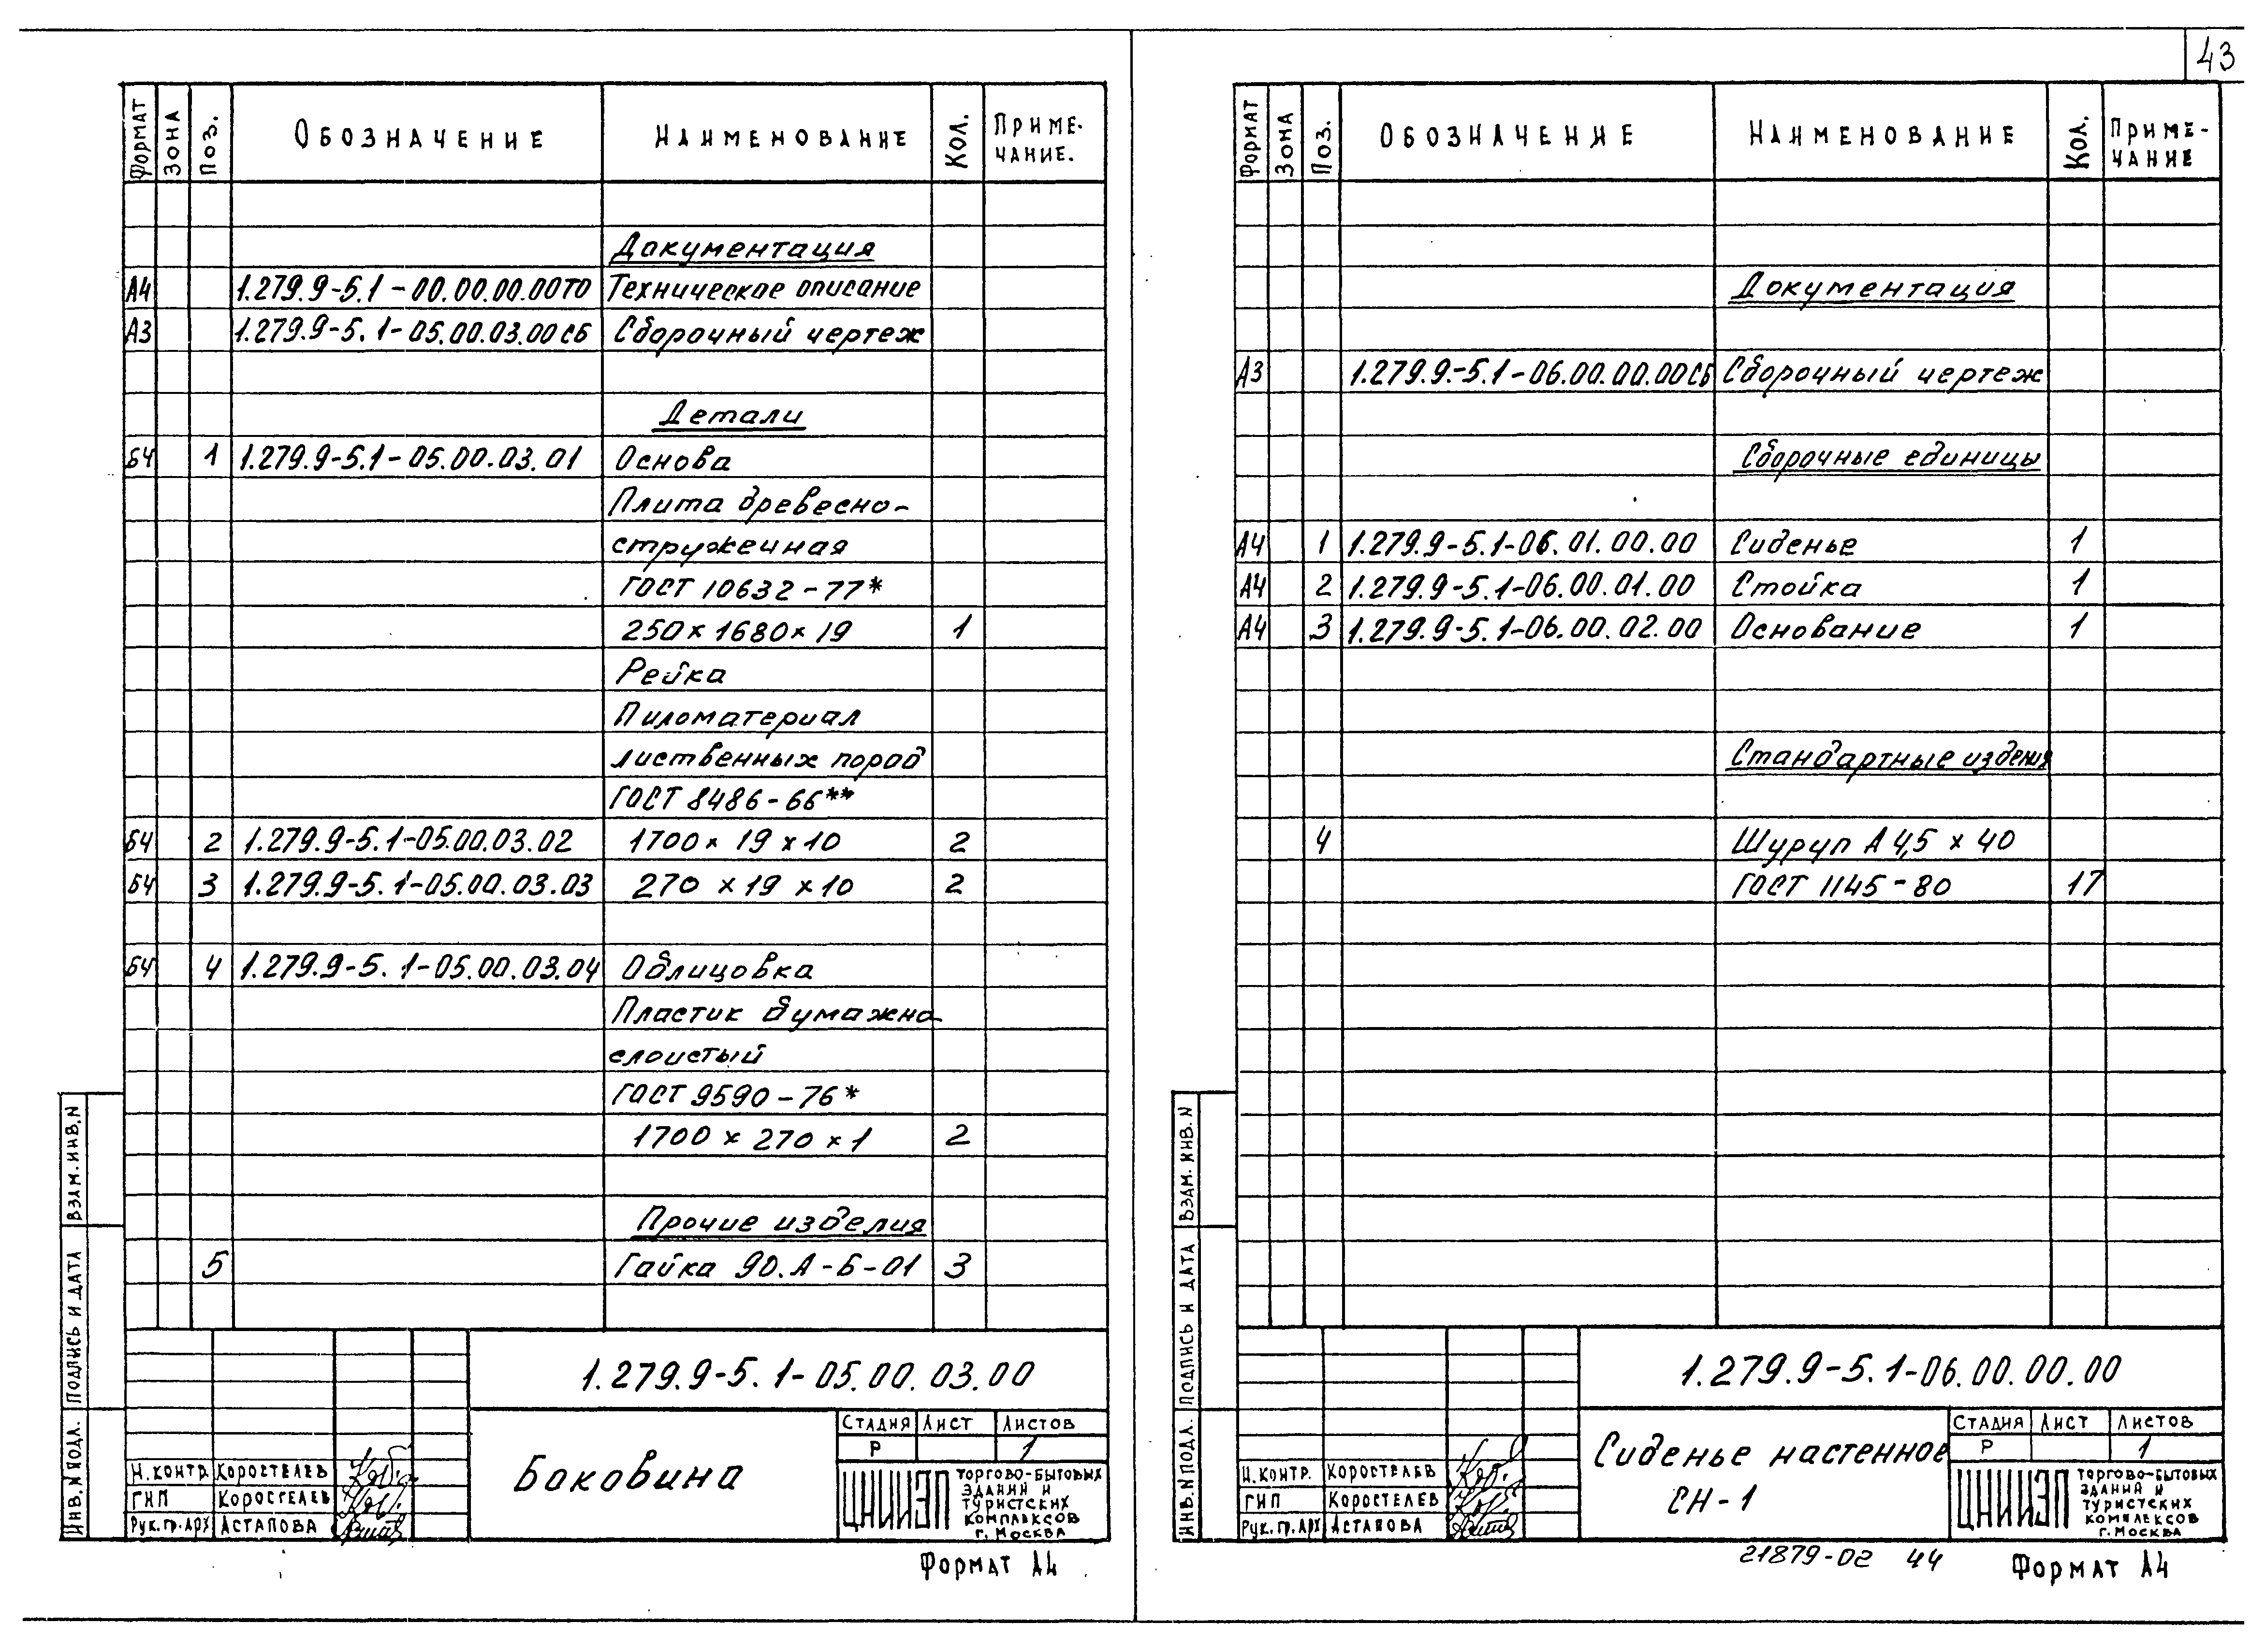 43
ФОРМАТ ЗОНА ПОЗ. ОБОЗНАЧЕНИЕ НАИМЕНОВАНИЕ КОЛ. ПРИМЕ-
ЧАНИЕ.
Документация
А4 1.279.9-5.1-00.00.00.00ТО Техническое описание
А3 1.279.9-5.1-05.00.03.00СБ Сборочный чертеж
Детали
БЧ 1 1.279.9-5.1-05.00.03.01 Основа
Плита древесно-
стружечная
ГОСТ 10632-77*
250×1680×19 1
Рейка
Пиломатериал
лиственных пород
ГОСТ 8486-66**
БЧ 2 1.279.9-5.1-05.00.03.02 1700×19×10 2
БЧ 3 1.279.9-5.1-05.00.03.03 270×19×10 2
БЧ 4 1.279.9-5.1-05.00.03.04 Облицовка
Пластик бумажно
слоистый
ГОСТ 9590-76*
1700×270×1 2
Прочие изделия
5 Гайка 90.А-Б-01 3
ВЗАМ. ИНВ. N
ПОДПИСЬ И ДАТА
ИНВ. N ПОДЛ.
1.279.9-5.1-05.00.03.00
Боковина
СТАДИЯ ЛИСТ ЛИСТОВ
Р 1
Н.КОНТР. КОРОСТЕЛЕВ
ГИП КОРОСТЕЛЕВ
Рук.гр.АРХ АСТАПОВА
ЦНИИЭП
ТОРГОВО-БЫТОВЫХ
ЗДАНИЙ И
ТУРИСТСКИХ
КОМПЛЕКСОВ
г. МОСКВА
ФОРМАТ А4
ФОРМАТ ЗОНА ПОЗ. ОБОЗНАЧЕНИЕ НАИМЕНОВАНИЕ КОЛ. ПРИМЕ-
ЧАНИЕ
Документация
А3 1.279.9.-5.1-06.00.00.00СБ Сборочный чертеж
Сборочные единицы
А4 1 1.279.9-5.1-06.01.00.00 Сиденье 1
А4 2 1.279.9-5.1-06.00.01.00 Стойка 1
А4 3 1.279.9-5.1-06.00.02.00 Основание 1
Стандартные издения
4 Шуруп А 4,5×40
ГОСТ 1145-80 17
ВЗАМ. ИНВ. N
ПОДПИСЬ И ДАТА
ИНВ. N ПОДЛ.
1.279.9-5.1-06.00.00.00
Сиденье настенное
СН-1
СТАДИЯ ЛИСТ ЛИСТОВ
Р 1
Н.КОНТР. КОРОСТЕЛЕВ
ГИП КОРОСТЕЛЕВ
Рук.гр.АРХ АСТАПОВА
ЦНИИЭП
ТОРГОВО-БЫТОВЫХ
ЗДАНИЙ И
ТУРИСТСКИХ
КОМПЛЕКСОВ
г. МОСКВА
21879-02 44
ФОРМАТ А4